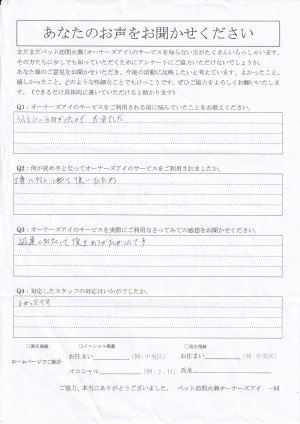 あなたのお声をお聞かせください
まだまだペット訪問火葬(オーナーズアイ)のサービスを知らない方がたくさんいらっしゃいます。
その方たちに少しでも知っていただくためにアンケートにご協力いただけないでしょうか。
あなた様のご意見をお聞かせいただき、今後の活動に反映したいと考えています。よかったこと、
嬉しかったこと、どのような些細なことでもけっこうです。ぜひご協力をよろしくお願いいたしま
す。(できるだけ具体的に書いていただけると助かります)
Q1:オーナーズアイのサービスをご利用される前に悩んでいたことをお教えください。
Q2:何が決め手となってオーナーズアイのサービスをご利用されましたか。
Q3:オーナーズアイのサービスを実際にご利用なさってみての感想をお聞かせください。
Q4:対応したスタッフの対応はいかがでしたか。
よかったです
□匿名掲載 □イニシャル掲載 □実名掲載
ホームページでご紹介
お住まい (例:中央区) お住まい (例:中央区)
イニシャル (例:J.H) 氏名
ご協力、本当にありがとうございました。 ペット訪問火葬オーナーズアイ 一同